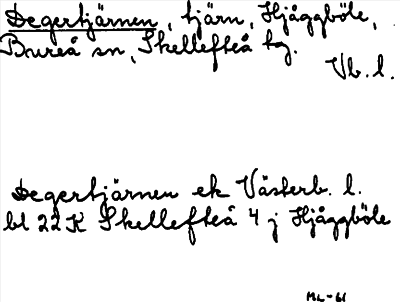 Degertjärnen, tjärn, Hjåggböle,
Bureå sn, Skellefteå tg.
Vb. l.
Degertjärnen ek Västerb. l.
bl 22 K Skellefteå 4 j Hjåggböle
ML-61